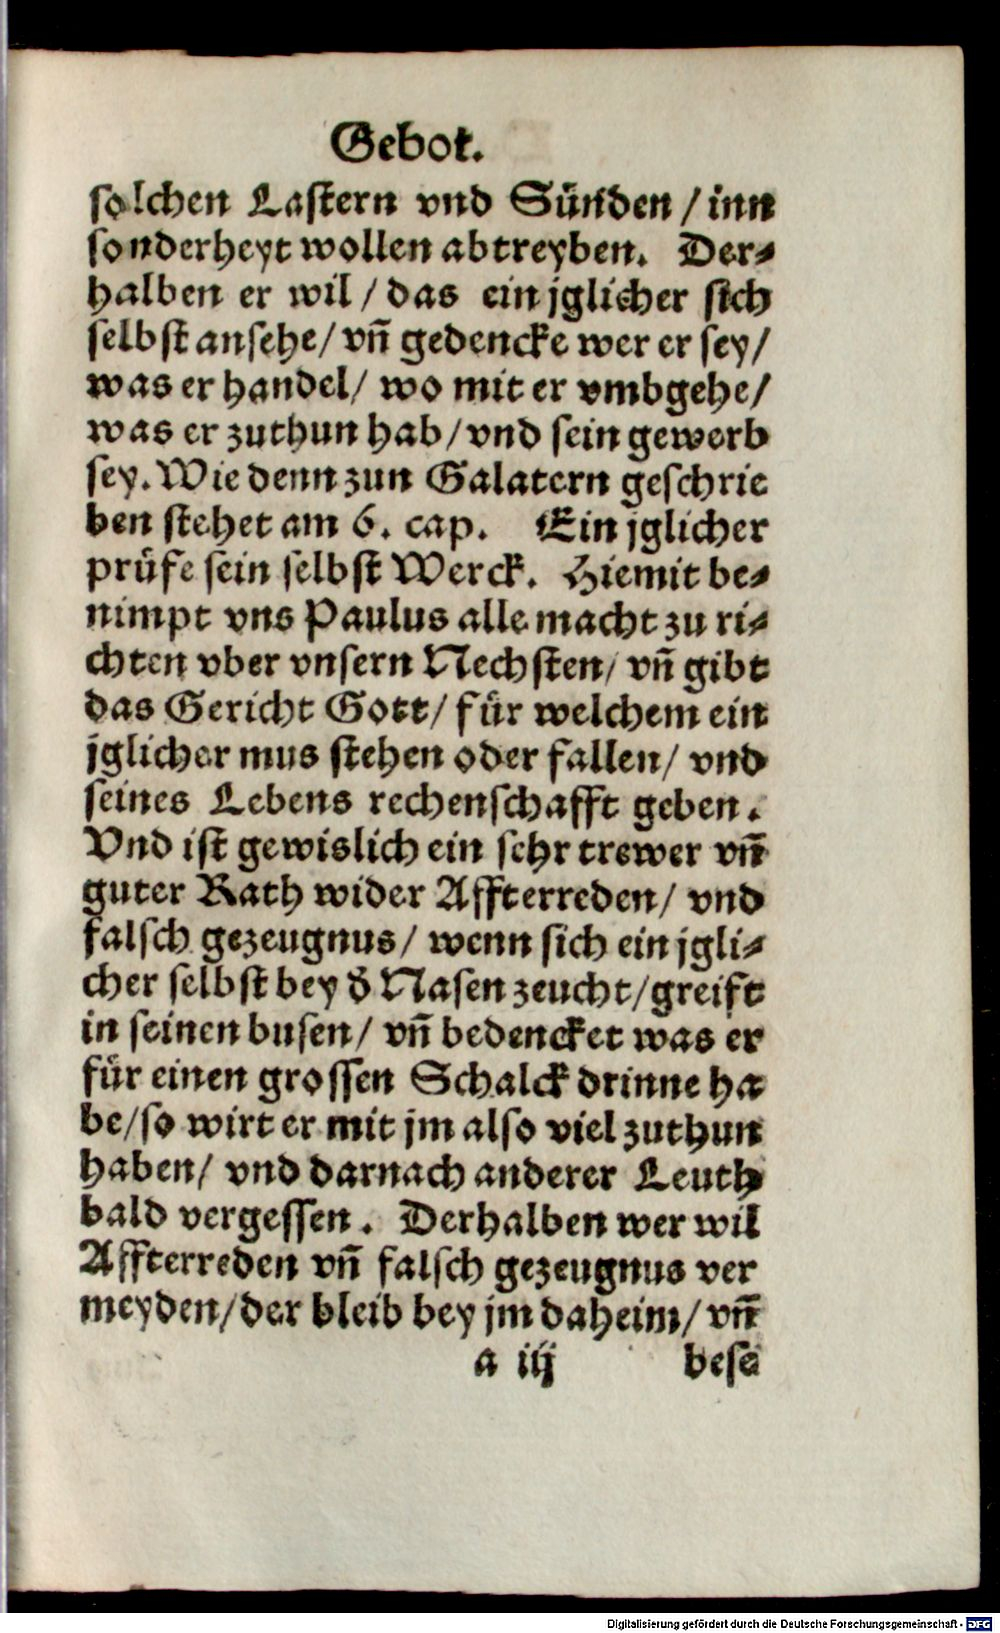 Gebot.
solchen Lastern vnd Sünden / inn
sonderheyt wollen abtreyben. Der-
halben er wil / das ein jglicher sich
selbst ansehe / vn̄ gedencke wer er sey /
was er handel / wo mit er vmbgehe /
was er zuthun hab / vnd sein gewerb
sey. Wie denn zun Galatern geschrie
ben stehet am 6. cap. Ein jglicher
prüfe sein selbst Werck. Hiemit be-
nimpt vns Paulus alle macht zu ri-
chten vber vnsern Nechsten / vn̄ gibt
das Gericht Gott / für welchem ein
jglicher mus stehen oder fallen / vnd
seines Lebens rechenschafft geben.
Vnd ist gewislich ein sehr trewer vn̄
guter Rath wider Affterreden / vnd
falsch gezeugnus / wenn sich ein jgli-
cher selbst bey d̄ Nasen zeucht / greift
in seinen busen / vn̄ bedencket was er
für einen grossen Schalck drinne ha
be / so wirt er mit jm also viel zuthun
haben / vnd darnach anderer Leuth
bald vergessen. Derhalben wer wil
Affterreden vn̄ falsch gezeugnus ver
meyden / der bleib bey jm daheim / vn̄
a iij bese
Digitalisierung gefördert durch die Deutsche Forschungsgemeinschaft - DFG